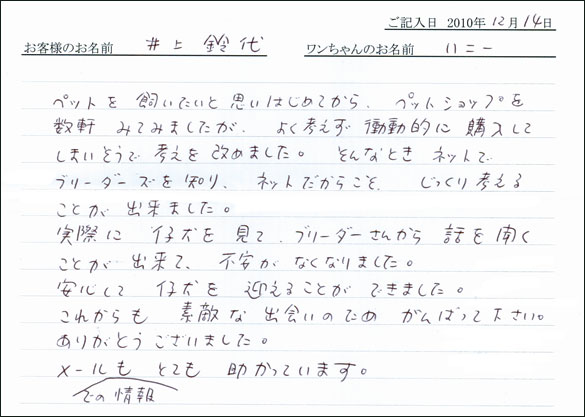 ご記入日 2010年 12月 14日
お客様のお名前 井上 鈴代 ワンちゃんのお名前 ハニー
ペットを 飼いたいと 思いはじめてから、ペットショップを
数軒 みてみましたが、よく考えず 衝動的に 購入して
しまいそうで 考えを 改めました。そんなとき ネットで
ブリーダーズを知り、ネットだからこそ、じっくり考える
ことが 出来ました。
実際に 仔犬を 見て、ブリーダーさんから 話を 聞く
ことが 出来て、不安が なくなりました。
安心して 仔犬を 迎えることが できました。
これからも 素敵な 出会いのため がんばって下さい。
ありがとうございました。
メールも とても 助かっています。
での情報